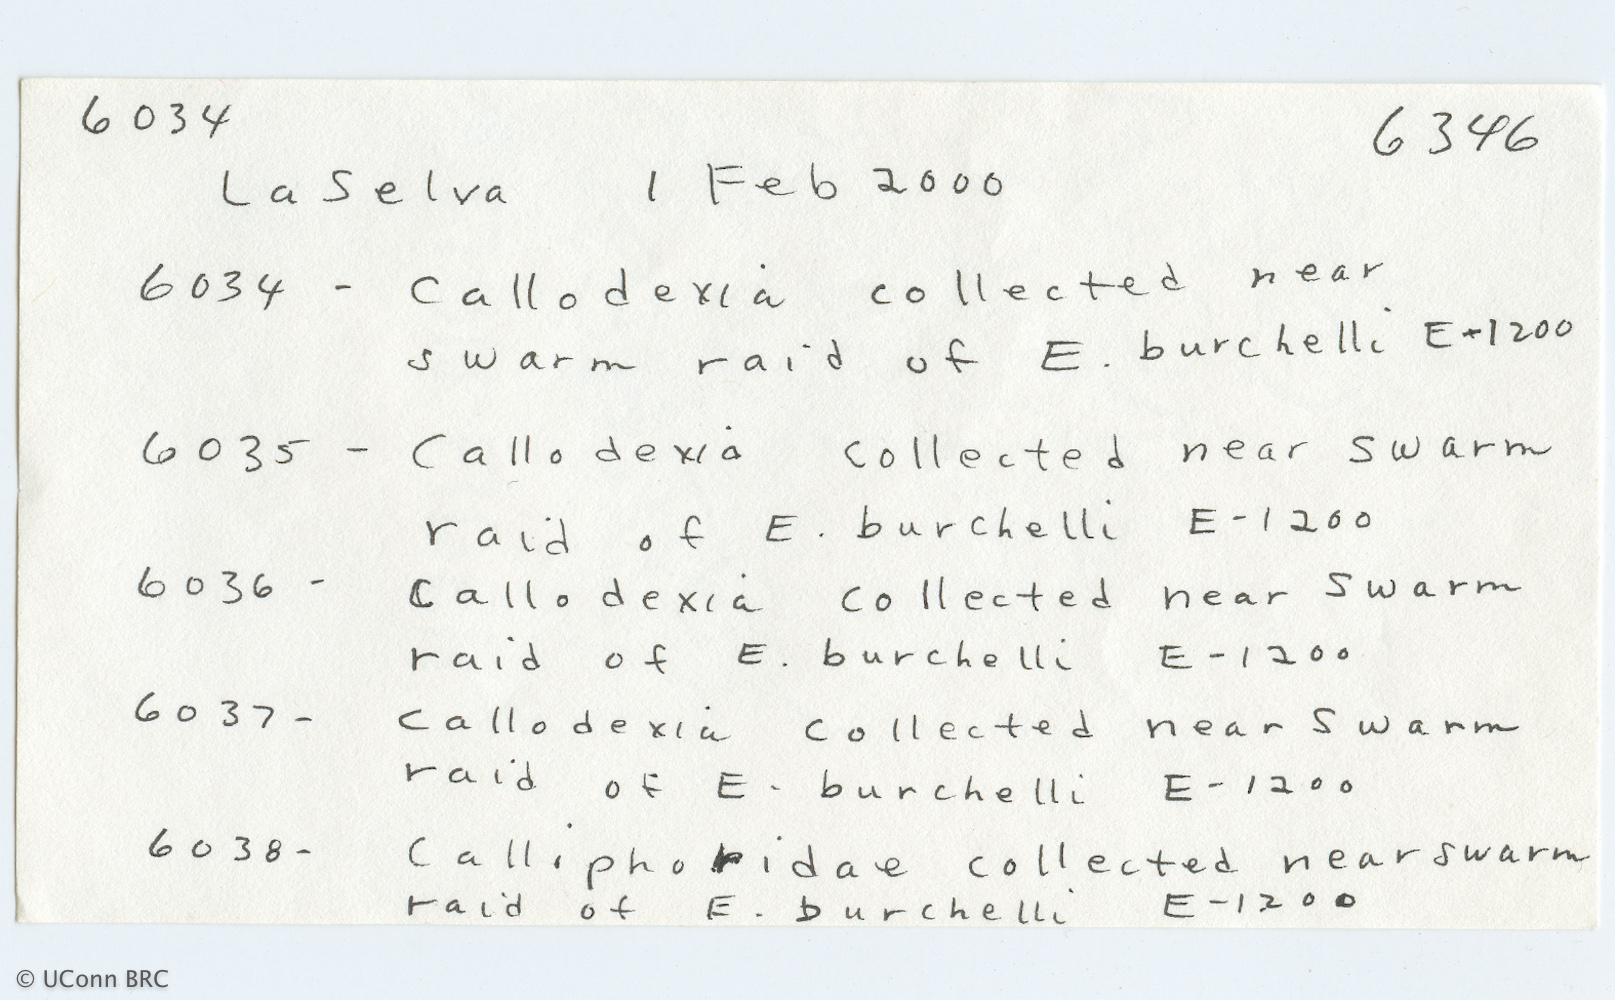 6034 6346
La Selva 1 Feb 2000
6034 - Callodexia collected near
swarm raid of E. burchelli E-1200
6035 - Callodexia collected near swarm
raid of E. burchelli E-1200
6036 - Callodexia collected near swarm
raid of E. burchelli E-1200
6037 - Callodexia collected near swarm
raid of E. burchelli E-1200
6038 - Calliphoridae collected near swarm
raid of E. burchelli E-1200
© UConn BRC